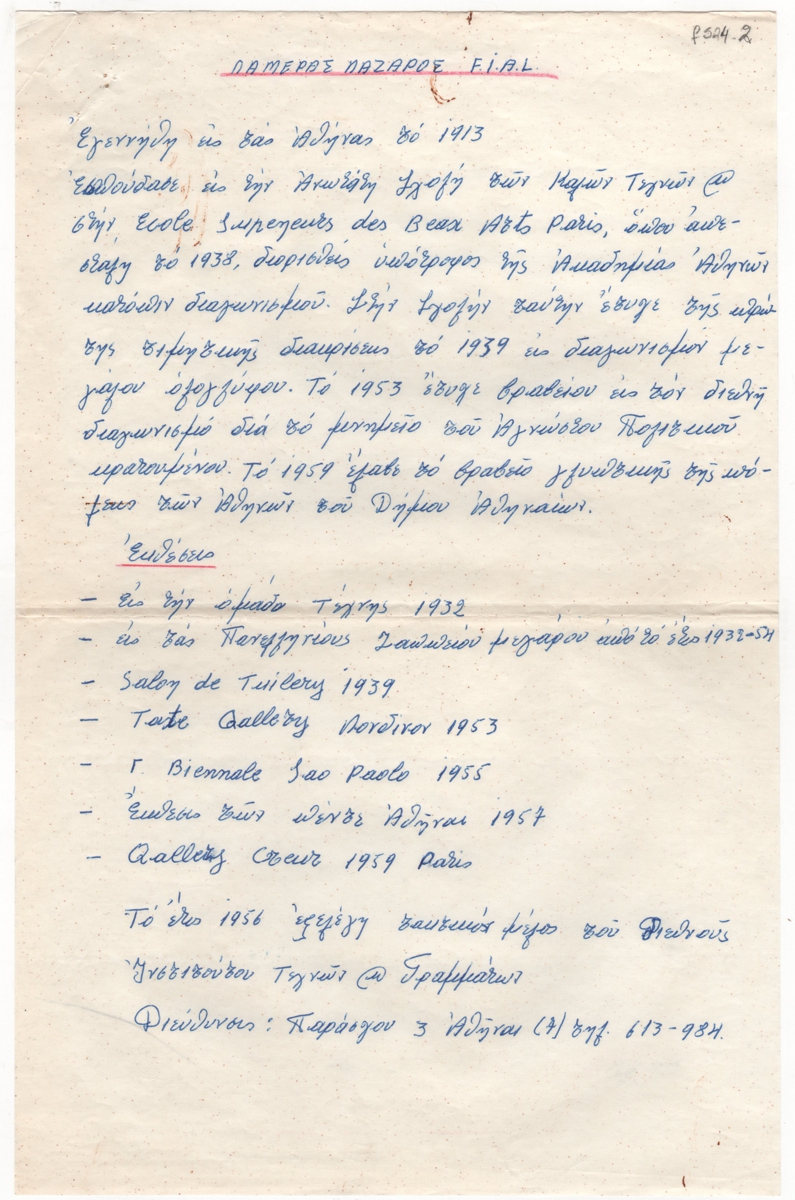 f524-2
ΛΑΜΕΡΑΣ ΛΑΖΑΡΟΣ F.I.A.L.
Ἐγεννήθη εἰς τὰς Ἀθήνας τὸ 1913
Ἐσπούδασε εἰς τὴν Ἀνωτάτη Σχολή τῶν Καλῶν Τεχνῶν @
στὴν Ecole Superieurs des Beax Arts Paris, ὅπου ἀπε-
στάλη τὸ 1938, διορισθείς ὑπότροφος τῆς Ἀκαδημίας Ἀθηνῶν
κατόπιν διαγωνισμοῦ. Στὴν Σχολήν ταύτην ἔτυχε τῆς πρώ-
της τιμητικῆς διακρίσεως τὸ 1939 εἰς διαγωνισμόν με-
γάλου ὁλογλύφου. Τὸ 1953 ἔτυχε βραβείου εἰς τὸν διεθνῆ
διαγωνισμό διὰ τὸ μνημεῖο τοῦ Ἀγνώστου Πολιτικοῦ
κρατουμένου. Τὸ 1959 ἔλαβε τὸ βραβεῖο γλυπτικῆς τῆς πό-
λεως τῶν Ἀθηνῶν τοῦ Δήμου Ἀθηναίων.
Ἐκθέσεις
- εἰς τὴν ὁμάδα Τέχνης 1932
- εἰς τὰς Πανελληνίους Ζαππείου μεγάρου ἀπὸ τὸ ἔτος 1932-54
- Salon de Tuilery 1939
- Tate Gallery Λονδῖνον 1953
- Γ. Biennale Sao Paolo 1955
- Ἔκθεσις τῶν πέντε Ἀθῆναι 1957
- Gallery 1959 Paris
Τὸ ἔτος 1956 ἐξελέγη τακτικόν μέλος τοῦ Διεθνοῦς
Ἰνστιτούτου Τεχνῶν @ Γραμμάτων
Διεύθυνσις: Παράσχου 3 Ἀθῆναι (7) τηλ. 613-984.